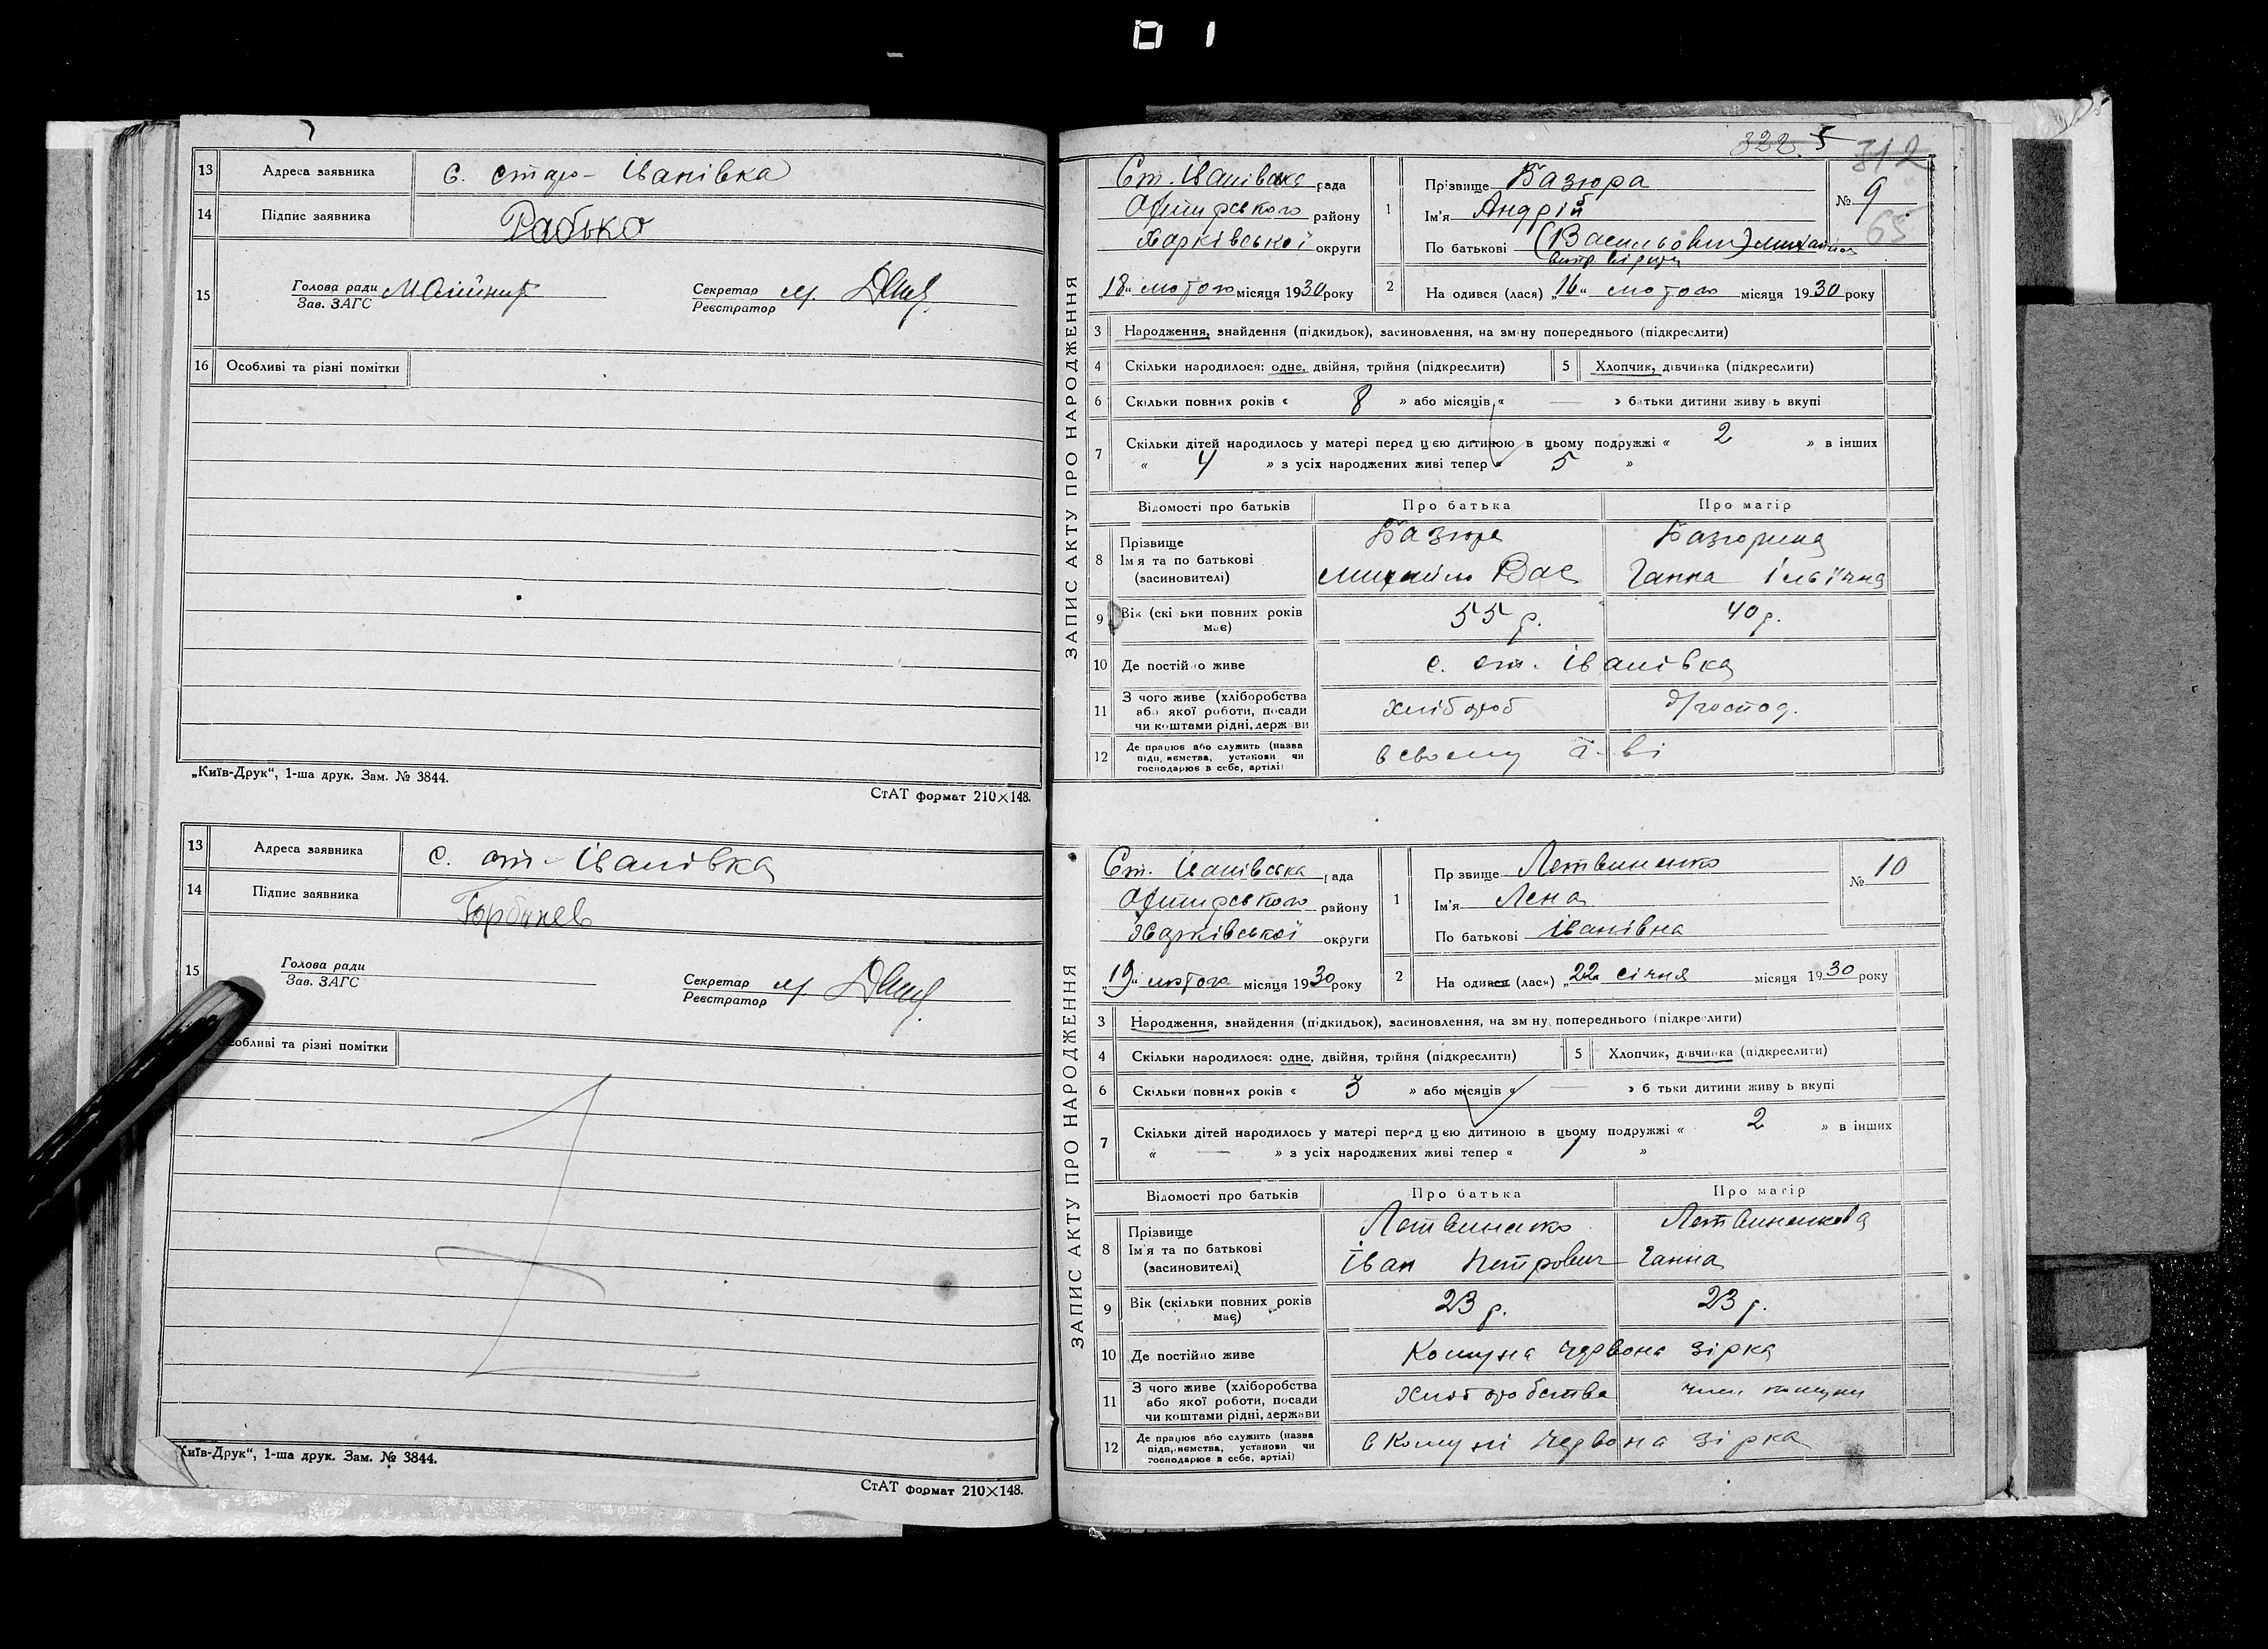 13 Адреса заявника с. старо-Іванівка
14 Підпис заявника Рабько
15 Голова ради
Зав. ЗАГС
Секретар
Реєстратор
16 Особливі та різні помітки
„Київ-Друк“, 1-ша друк. Зам. № 3844.
СтАТ формат 210×148.
13 Адреса заявника с. ст-Іванівка
14 Підпис заявника
15 Голова ради
Зав. ЗАГС
Секретар
Реєстратор
собливі та різні помітки
Київ-Друк“, 1-ша друк. Зам. № 3844.
СтАТ формат 210×148.
322. 5 312
ЗАПИС АКТУ ПРО НАРОДЖЕННЯ
Ст. Іванівська рада
району
Харківської округи
„18“ лютого місяця 1930 року
1 Прізвище Базюра
Ім'я Андрій
По батькові (Васильович) Михайлов
№ 9
65
2 На одився (лася) „16“ лютого місяця 1930 року
3 Народження, знайдення (підкидьок), засиновлення, на зміну попереднього (підкреслити)
4 Скільки народилося: одне, двійня, трійня (підкреслити) 5 Хлопчик, дівчинка (підкреслити)
6 Скільки повних років « 8 » або місяців « — » батьки дитини живу ь вкупі
7 Скільки дітей народилось у матері перед цією дитиною в цьому подружжі « 2 » в інших
« 4 » з усіх народжених живі тепер « 5 »
Відомості про батьків Про батька Про матір
8 Прізвище Базюра Базюрина
Ім'я та по батькові Михайло Вас Ганна Ільїчна
(засиновителі)
9 Вік (скільки повних років має) 55 р. 40 р.
10 Де постійно живе с. ст. Іванівка
11 З чого живе (хліборобства або якої роботи, посади чи коштами рідні, держави хлібороб д/господ.
12 Де працює або служить (назва підприємства, установи чи господарює в себе, артілі) в своєму г-ві
ЗАПИС АКТУ ПРО НАРОДЖЕННЯ
Ст. Іванівська рада
району
Харківської округи
„19“ лютого місяця 1930 року
1 Прізвище Летвиненко
Ім'я Лена
По батькові Іванівна
№ 10
2 На одився (лася) „22“ січня місяця 1930 року
3 Народження, знайдення (підкидьок), засиновлення, на зміну попереднього (підкреслити)
4 Скільки народилося: одне, двійня, трійня (підкреслити) 5 Хлопчик, дівчинка (підкреслити)
6 Скільки повних років « 3 » або місяців « — » б тьки дитини живу ь вкупі
7 Скільки дітей народилось у матері перед цією дитиною в цьому подружжі « 2 » в інших
« — » з усіх народжених живі тепер « 1 »
Відомості про батьків Про батька Про матір
8 Прізвище Летвиненко Летвиненкова
Ім'я та по батькові Іван Петрович Ганна
(засиновителі)
9 Вік (скільки повних років має) 23 р. 23 р.
10 Де постійно живе Комуна Червона Зірка
11 З чого живе (хліборобства або якої роботи, посади чи коштами рідні, держави хліборобства член комуни
12 Де працює або служить (назва підприємства, установи чи господарює в себе, артілі) в Комуні Червона Зірка